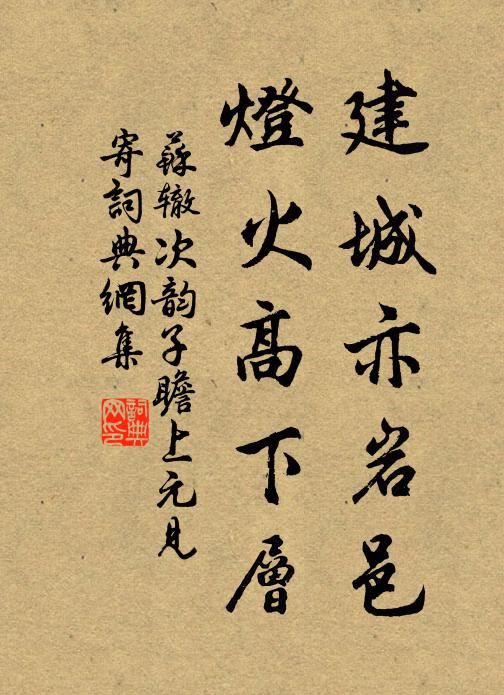 建城亦岩邑
燈火高下層
蘇辙次韵子瞻上元見
寄詞典網集
詞典
网印